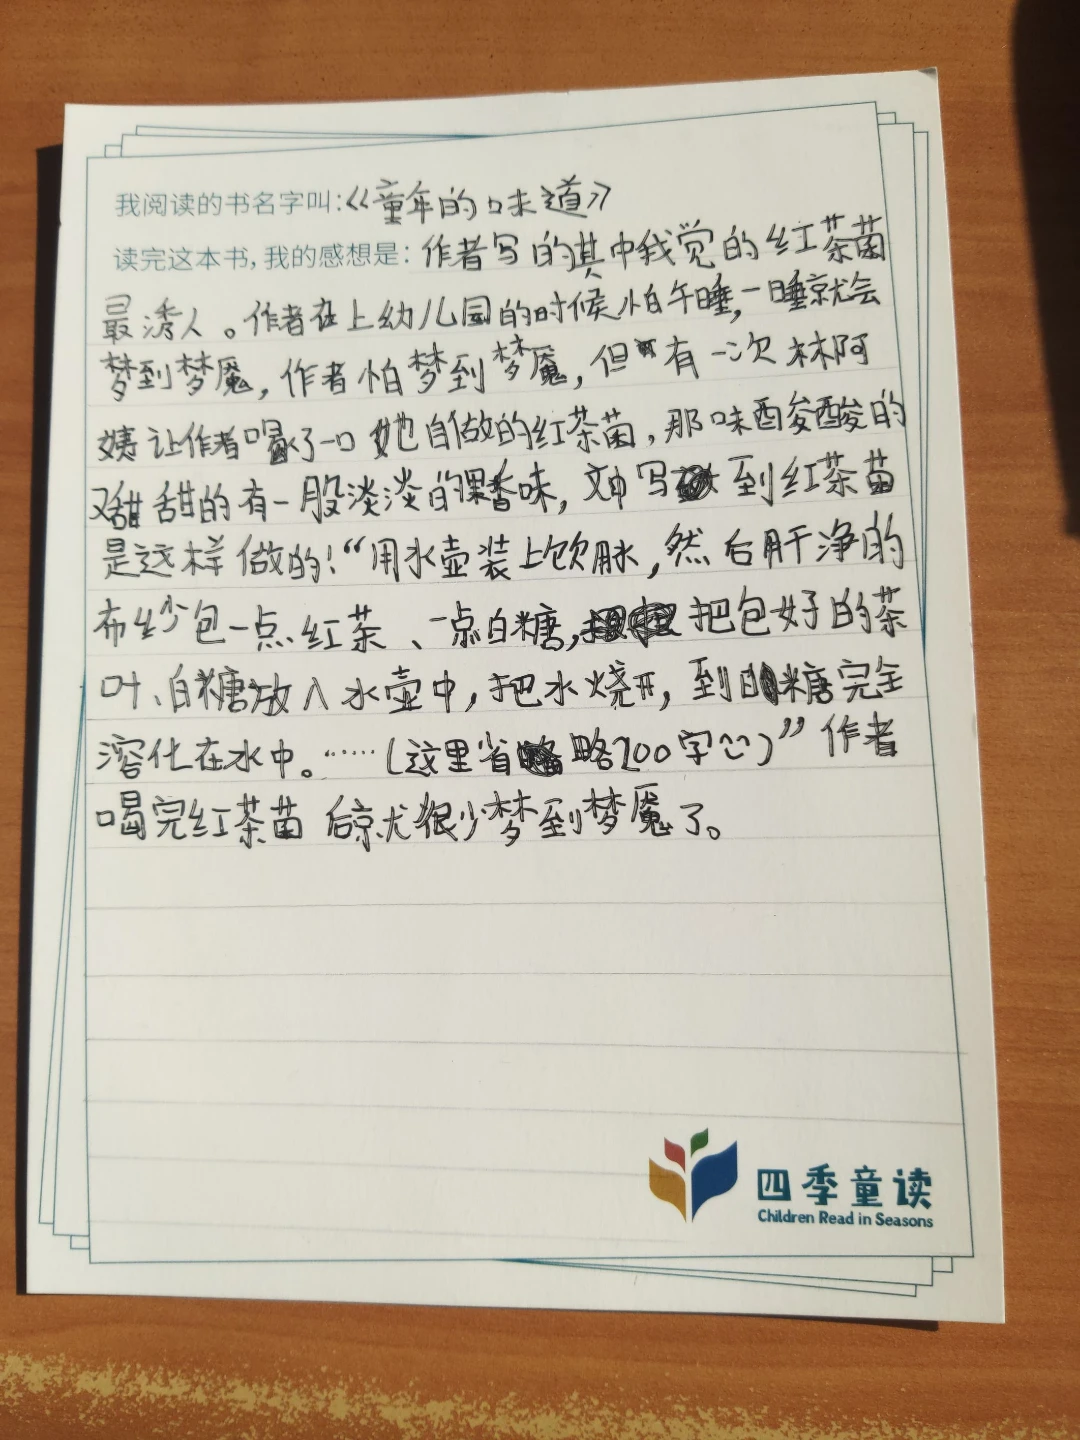 我阅读的书名字叫:《童年的味道》
读完这本书,我的感想是:作者写的其中我觉的红茶菌
最诱人。作者在上幼儿园的时候怕午睡,一睡就会
梦到梦魇,作者怕梦到梦魇,但有一次林阿
姨让作者喝了一口她自做的红茶菌,那味酸酸的
又甜甜的有一股淡淡的果香味,文中写到红茶菌
是这样做的!“用水壶装上饮水,然后用干净的
布纱包一点红茶、一点白糖,把包好的茶
叶、白糖放入水壶中,把水烧开,到糖完全
溶化在水中。……(这里省略200字^^)”作者
喝完红茶菌后就很少梦到梦魇了。
四季童读
Children Read in Seasons